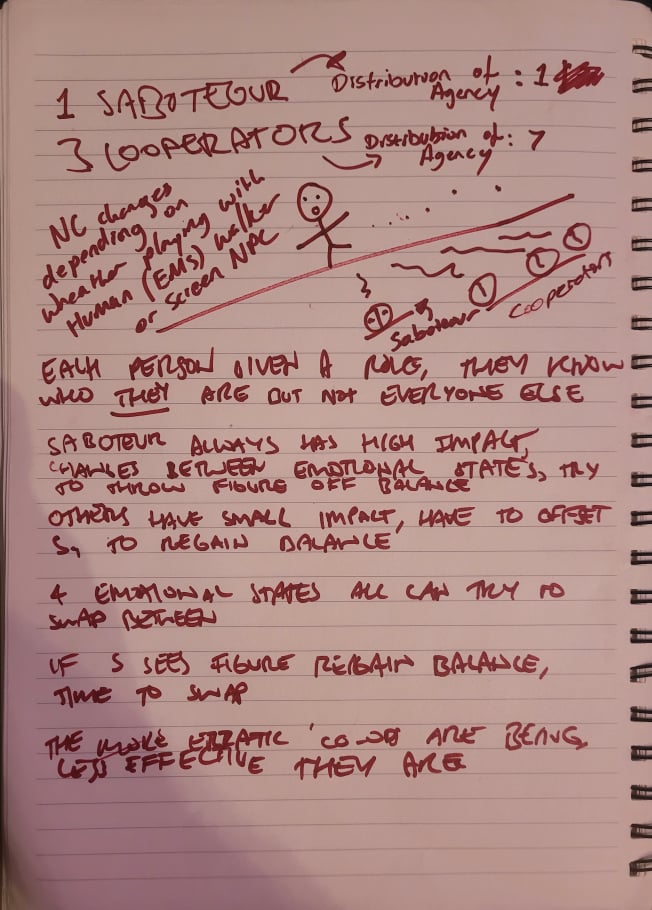 1 SABOTEUR
Distribution of
Agency : 1
3 COOPERATORS
Distribution of
Agency : 7
NC changes
depending on
wheather playing with
Human (EMS) walker
or screen NPC
Saboteur
Cooperators
EACH PERSON GIVEN A ROLE, THEY KNOW
WHO THEY ARE BUT NOT EVERYONE ELSE
SABOTEUR ALWAYS HAS HIGH IMPACT,
CHANGES BETWEEN EMOTIONAL STATES, TRY
TO THROW FIGURE OFF BALANCE
OTHERS HAVE SMALL IMPACT, HAVE TO OFFSET
S, TO REGAIN BALANCE
4 EMOTIONAL STATES ALL CAN TRY TO
SWAP BETWEEN
IF S SEES FIGURE REGAIN BALANCE,
TIME TO SWAP
THE MORE ERRATIC CO-OPS ARE BEING,
LESS EFFECTIVE THEY ARE